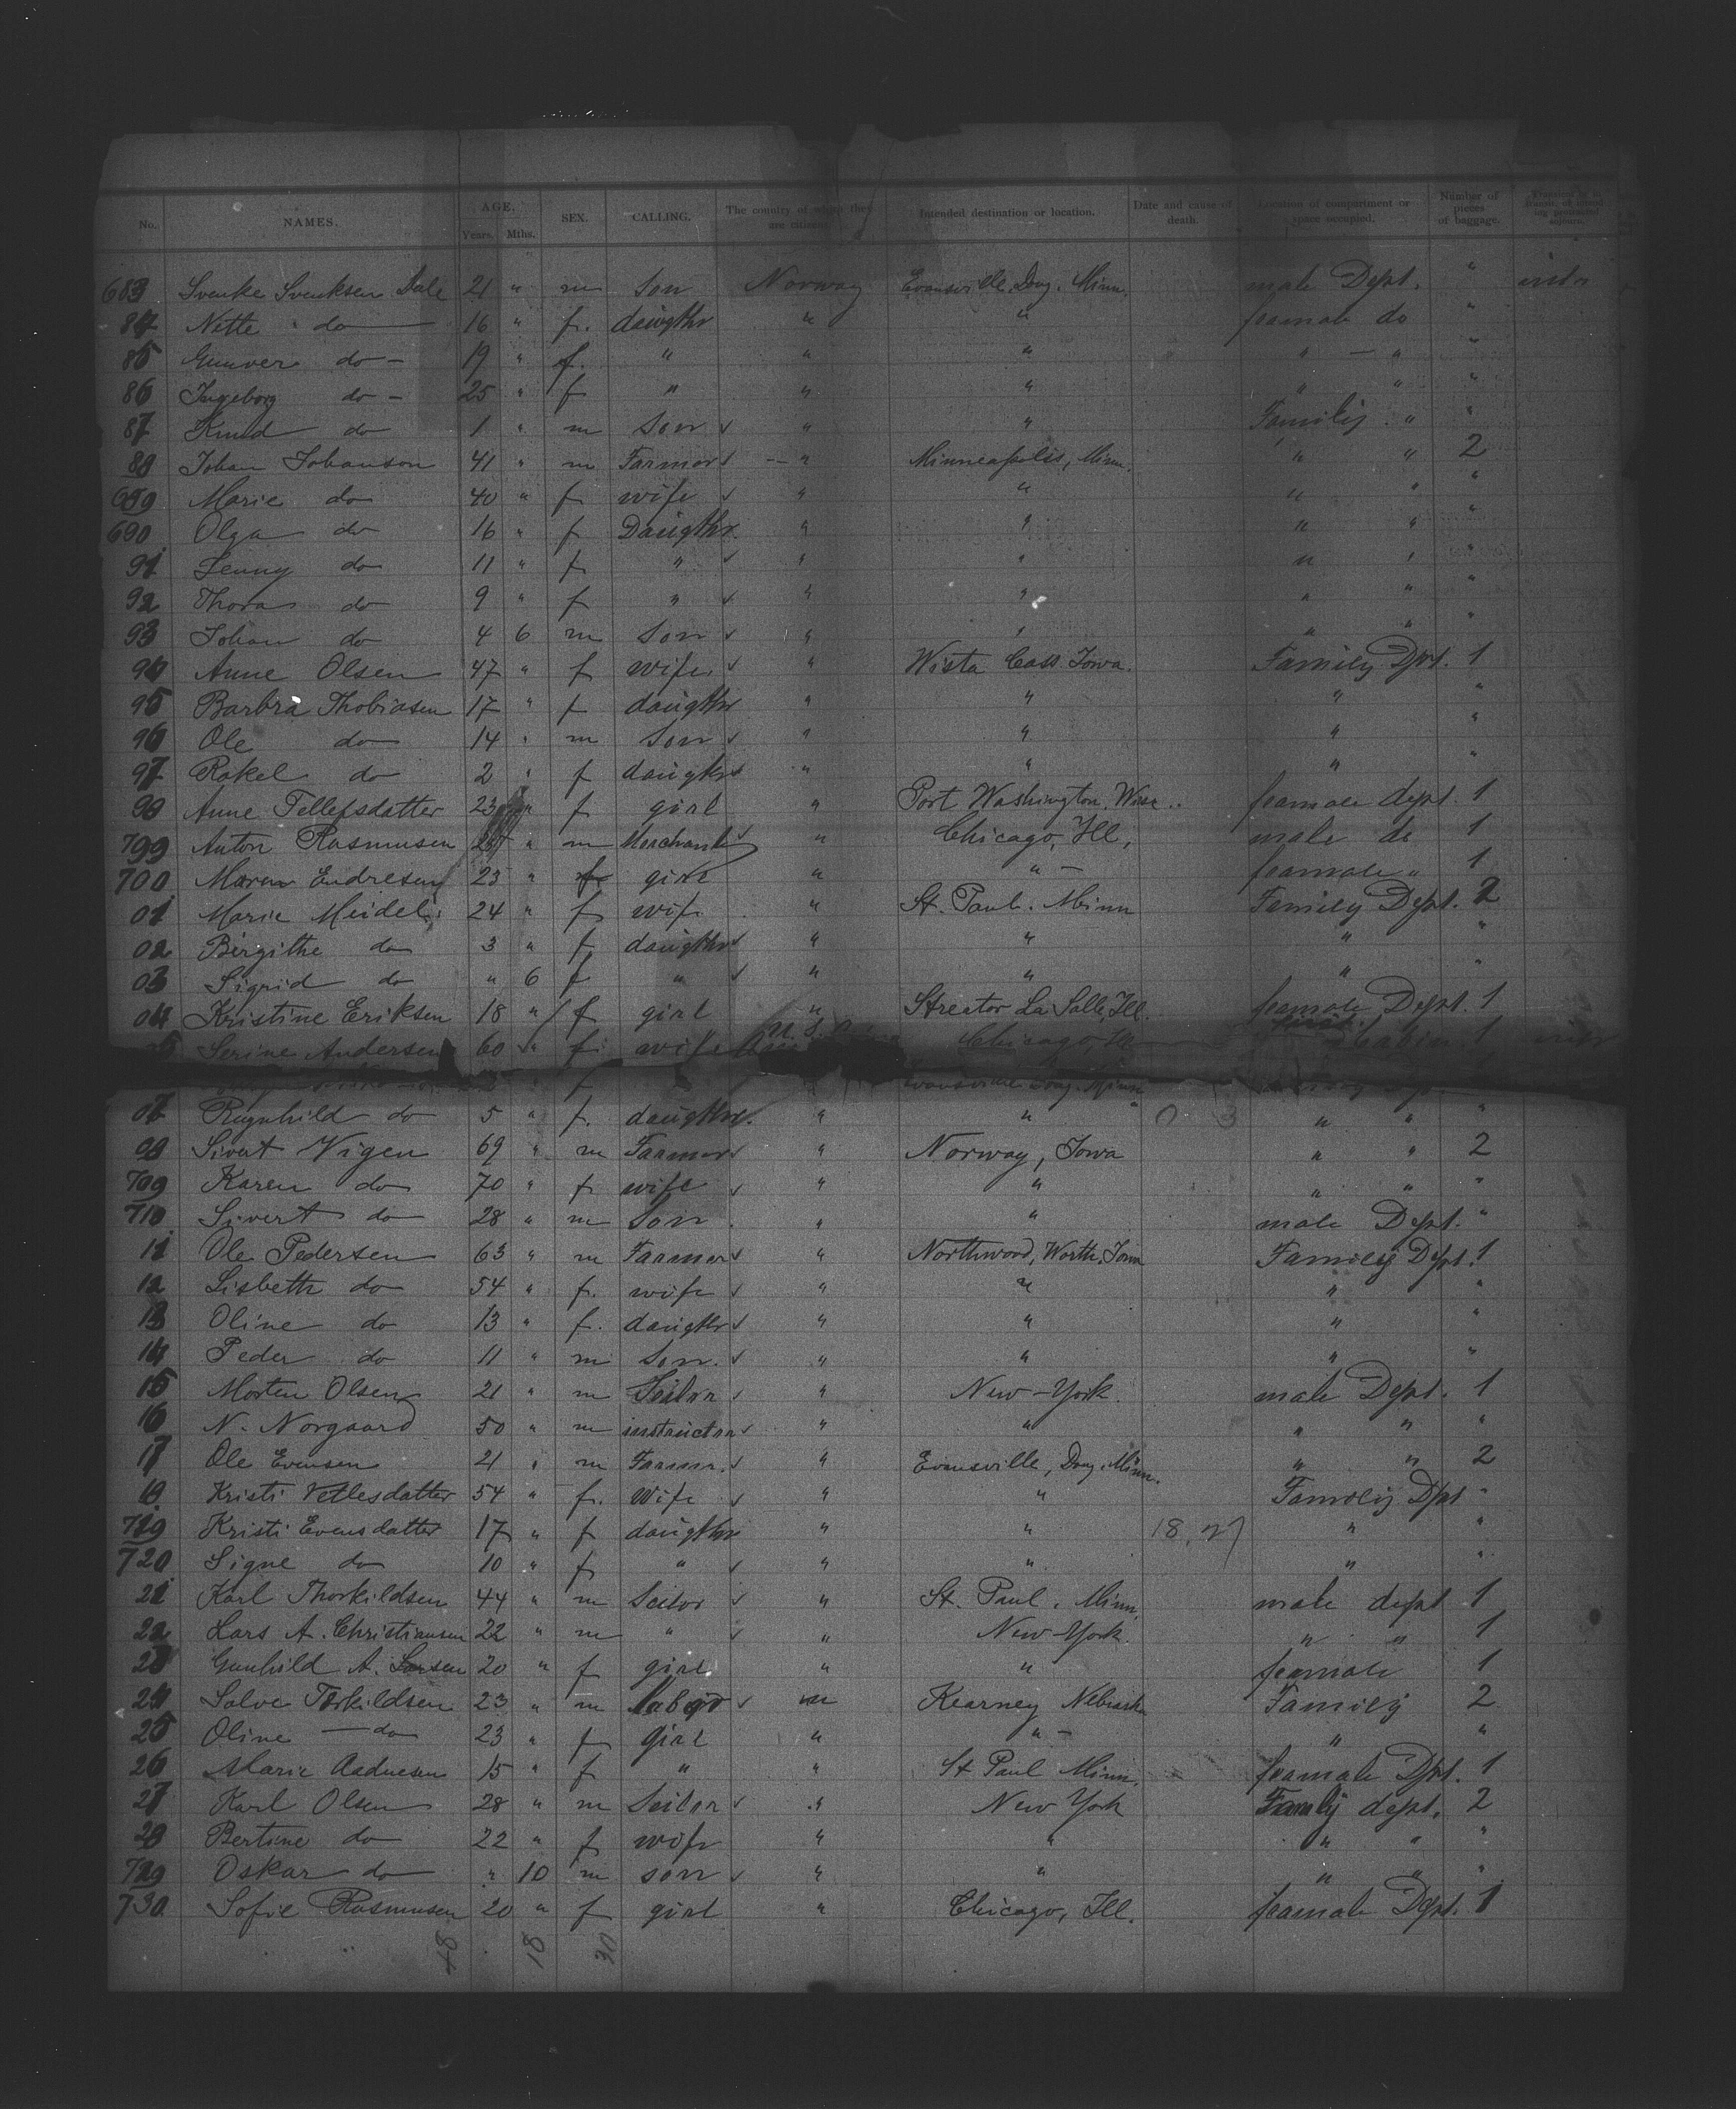 No. NAMES. AGE. Years. Mths. SEX. CALLING. The country of which they are citizens. Intended destination or location. Date and cause of death. Location of compartment or space occupied. Number of pieces of baggage.
683 Svenke Svenksen Dale 21 " m Son Norway Evansville, Doug. Minn. male Dept. "
84 Nette do 16 " f. daugthr " " feamale do "
85 Gunver do - 19 " f. " " " " - " "
86 Ingeborg do - 25 " f " " " " " "
87 Knud do 1 " m Son " " Familij " "
88 Johan Johanson 41 " m Farmor " Minneapolis, Minn. " " 2
689 Marie do 40 " f wife " " " " "
690 Olga do 16 " f Daugthr. " " " " "
91 Jenny do 11 " f " " " " " "
92 Thora do 9 " f " " " " " "
93 Johan do 4 6 m Son " " " " "
94 Anne Olsen 47 " f wife " Wista Cass Iowa. Family Dpt. 1
95 Barbra Thobiasen 17 " f daugthr " " " "
96 Ole do 14 " m Son " " " "
97 Rakel do 2 " f daugthr " " " "
98 Anne Tellefsdatter 23 " f girl " Port Washington, Wisc.. feamale dept. 1
799 Anton Rasmusen " m Merchant " Chicago, Ill, male do 1
700 Maren Endresen 23 " f girl " " - feamale " 1
01 Marie Meidel 24 " f wife " St. Paul. Minn Family Dept. 2
02 Birgithe do 3 " f daugthr " " " "
03 Sigrid do " 6 f " " " " "
04 Kristine Eriksen 18 " f girl " Streator La Salle, Ill. feamale Dept. 1
05 Serine Andersen 60 " f wife U.S. Chicago, Ill 1
f Evansville Doug. Minn
07 Rignhild do 5 " f. daugthr. " " " " "
08 Sivert Vigen 69 " m Farmor " Norway, Iowa " " 2
709 Karen do 70 " f wife " " " " "
710 Sivert do 28 " m Son " " male Dept. "
11 Ole Pedersen 63 " m Farmor " Northwood, Worth. Iowa Familij Dept. 1
12 Lisbeth do 54 " f. wife " " " "
13 Oline do 13 " f. daugthr " " " "
14 Peder do 11 " m Son. " " " "
15 Morten Olsen 21 " m Seilor " New-York. male Dept. 1
16 N. Norgaard 50 " m instructor " " " " "
17 Ole Evensen 21 " m Farmr. " Evansville, Doug. Minn. " " 2
18 Kristi Vetlesdatter 54 " f. Wife " " Familij Dpt "
719 Kristi Evensdatter 17 " f daugthr " " 18,27 " "
720 Signe do 10 " f " " " " "
21 Karl Thorkildsen 44 " m Seilor " St. Paul. Minn. male dept 1
22 Lars A. Christiansen 22 " m " " New-York. " " 1
23 Gunhild A. Larsen 20 " f girl " " feamale 1
24 Salve Torkildsen 23 " m labor " Kearney Nebraska Familij 2
25 Oline - do 23 " f girl " " - " "
26 Marie Aadnesen 15 " f " " St Paul Minn. feamale Dpt. 1
27 Karl Olsen 28 " m Seilor " New York Familij dept. 2
28 Bertine do 22 " f wife " " " " "
729 Oskar do " 10 m son " " " " "
730 Sofie Rasmusen 20 " f girl " Chicago, Ill. feamale Dept. 1
48 18 30